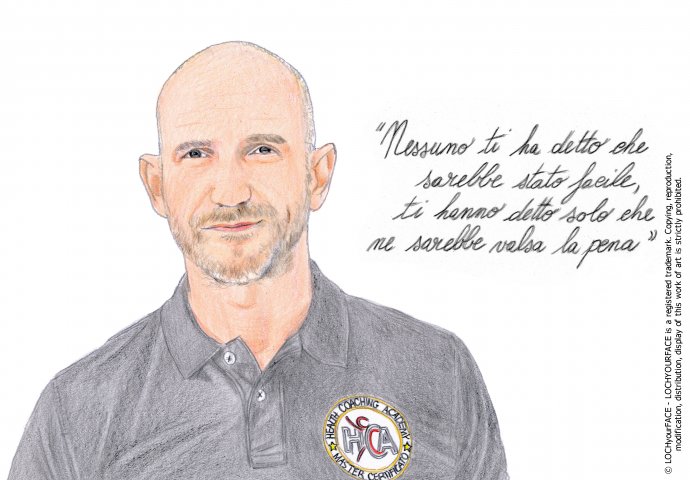 "Nessuno ti ha detto che
sarebbe stato facile,
ti hanno detto solo che
ne sarebbe valsa la pena"
HEALTH COACHING ACADEMY
HCA
MASTER CERTIFICATO
© LOCHyourFACE - LOCHYOURFACE is a registered trademark. Copying, reproduction,
modification, distribution, display of this work of art is strictly prohibited.